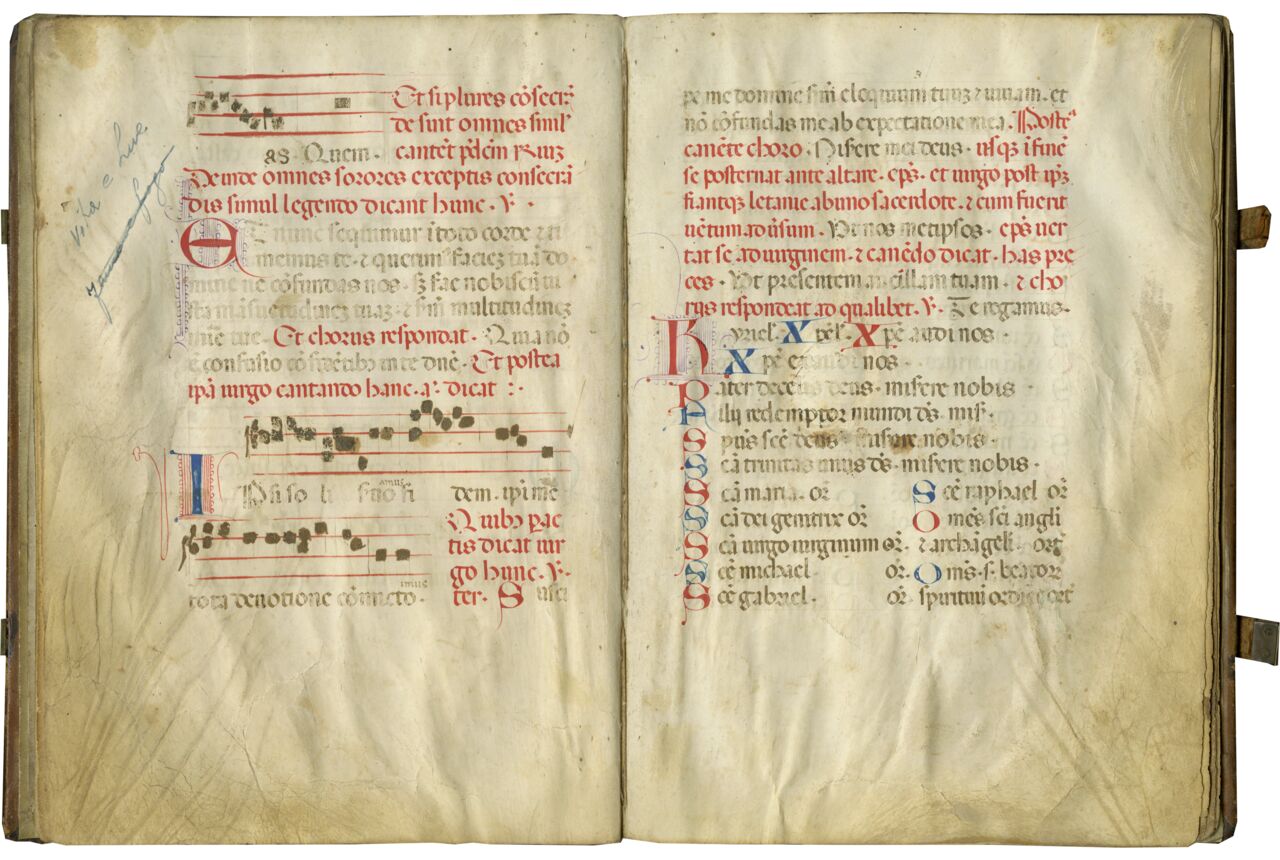 Et si plures cōsecrā
de sint omnes simil'
as. Quem. cantēt p̄dcm̄ Ruiȝ
Deinde omnes sorores exceptis consecrā
dis simul legendo dicant hunc. ℣
Et nunc seqnimur ī toto corde ⁊ ti
memus te. ⁊ querim faciez tuā do
mine ne cōfundas nos. sȝ fac nobiscū iu
sta māsuetudineȝ tuaȝ. ⁊ sm̄ multitudineȝ
mīe tue. Et chorus respondat. Quia nō
ē confusio cōfidētibȝ in te dn̄e. Et postea
ip̄a uirgo cantando hanc. a. dicat :
Ipsi so li seruo fi dem. ip̄i me
amus
Quibȝ ꝑac
tis dicat uir
go hunc. ℣.
imus
tota deuotione cōmicto. ter. Susci
pe me domine sm̄ eloquium tuuȝ ⁊ uiuam. et
nō cōfundas me ab expectatione mea. Poste
canēte choro. Misere mei deus. usqȝ ī finē
se posternat ante altare. ep̄s. et uirgo post ip̄ȝ
fiantqȝ letanie ab uno sacerdote. ⁊ cum fuerit
uētum ad ūsum. Ut nos metipsos. ep̄s uer
tat se ad uirginem. ⁊ canēdo dicat. has pre
ces. Ut presentem ancillam tuam. ⁊ cho
rus respondeat ad qualibet. ℣. Te rogamus.
Kyriel'. Xp̄el'. Xp̄e audi nos.
Xp̄e exaudi nos.
Pater de celis deus. misere nobis
Fili redemptor mundi dс̄. mis̄.
Sp̄us scē deus misere nobis.
Scā trinitas unus dс̄. misere nobis.
Scā maria. or̄ Scē raphael or̄
Scā dei genitrix or̄ Omēs sci angli
Scā uirgo uirginum or̄. ⁊ archāgeli. or̄
Scē michael. or̄. Om̄s. s. beator
Scē gabriel. or̄. spirituū ordīes or̄